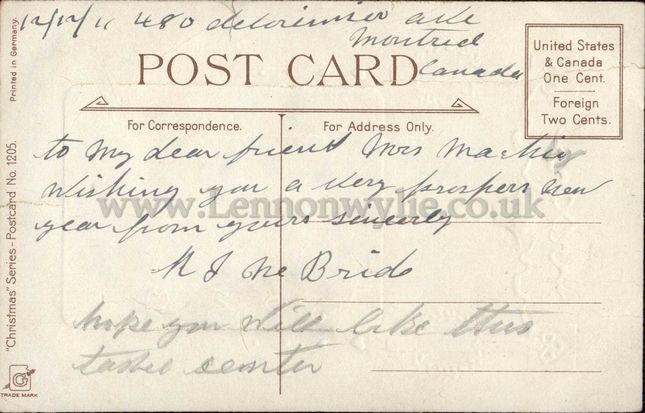 12/12/11 480 delorimier ave
Montreal
Canada
POST CARD
United States
& Canada
One Cent.
Foreign
Two Cents.
For Correspondence.
For Address Only.
to My dear friend Mrs Mackie
Wishing you a very prospers New
year from yours sincerly
www.Lennonwylie.co.uk
Mc Bride
hope you will like this
table center
Printed in Germany.
"Christmas" Series - Postcard No. 1205.
TRADE MARK